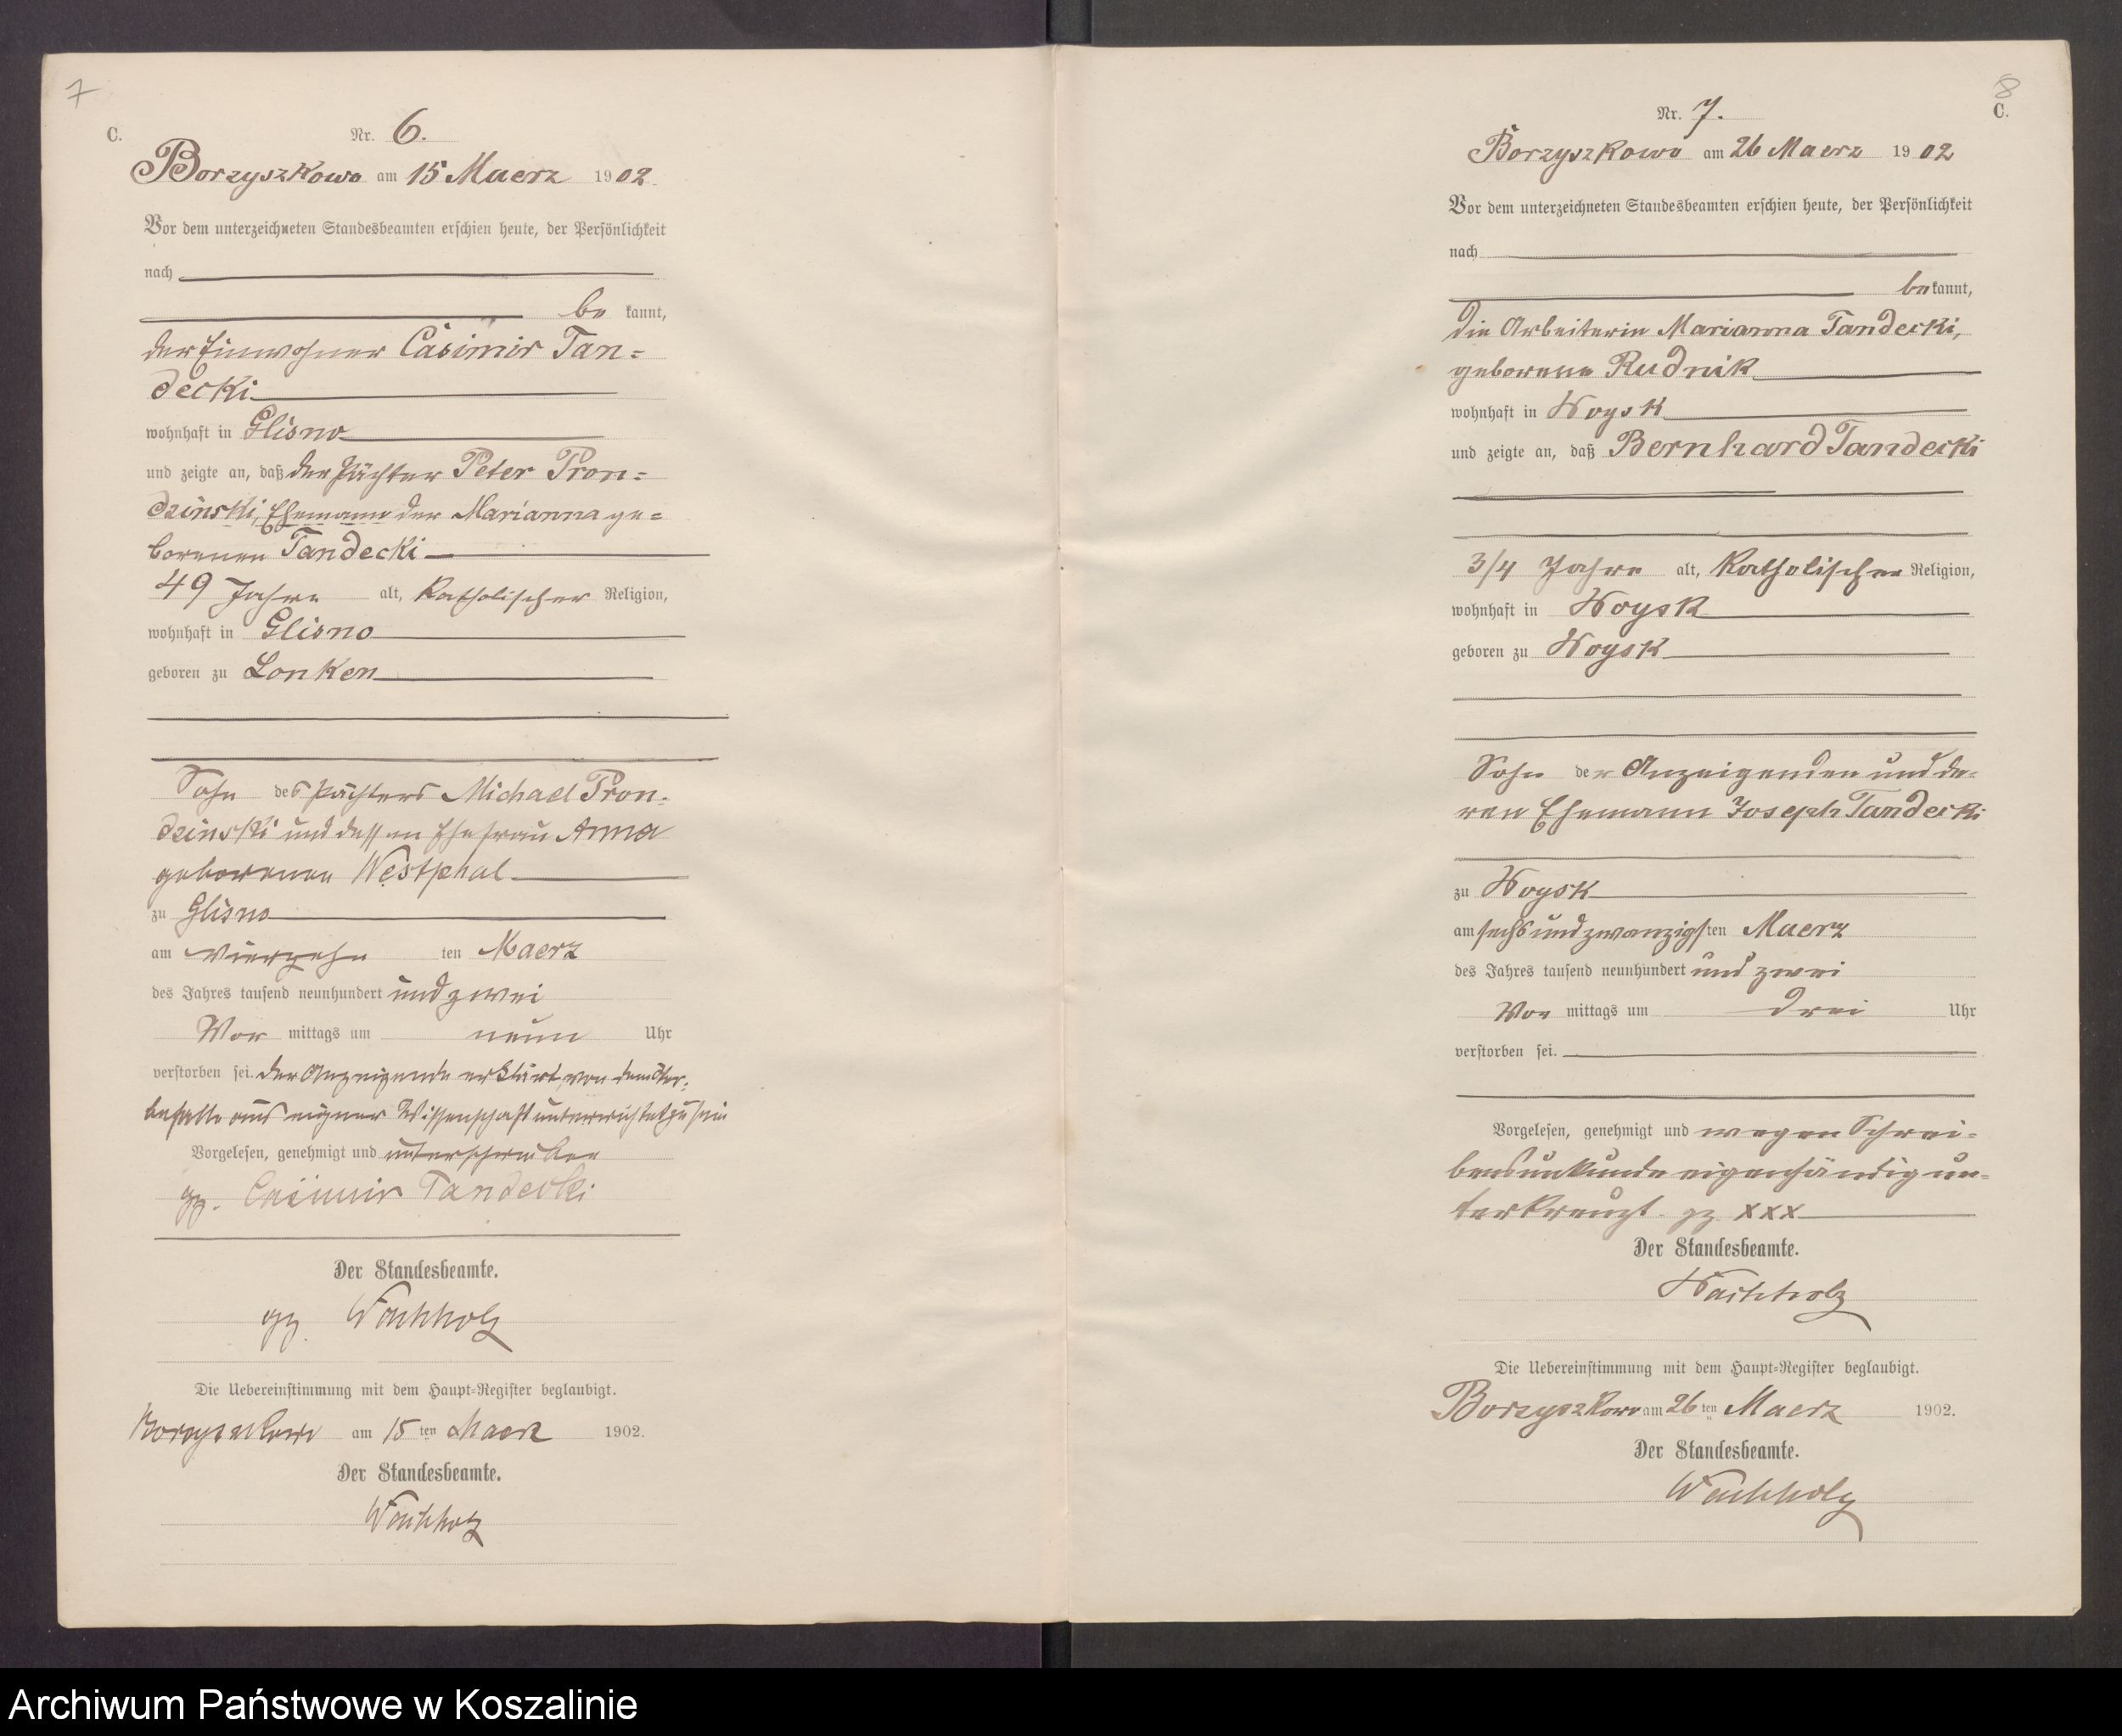 7
C.
Nr. 6.
Borzyszkowo am 15 Maerz 1902.
Vor dem unterzeichneten Standesbeamten erschien heute, der Persönlichkeit
nach
be kannt,
der Einwohner Casimir Tan=
decki
wohnhaft in Glisno
und zeigte an, daß der Pächter Peter Pron=
dzinski, Ehemann der Marianna ge=
borenen Tandecki
49 Jahre alt, katholischer Religion,
wohnhaft in Glisno
geboren zu Lonken
Sohn des Pächters Michael Pron=
dzinski und dessen Ehefrau Anna
geborenen Westphal
zu Glisno
am vierzehn ten Maerz
des Jahres tausend neunhundert und zwei
Vor mittags um neun Uhr
verstorben sei. Der Anzeigende erklärt, von dem Ster=
befalle aus eigner Wissenschaft unterrichtet zu sein
Vorgelesen, genehmigt und unterschrieben
gz. Casimir Tandecki
Der Standesbeamte.
gz. Wachholz
Die Uebereinstimmung mit dem Haupt=Register beglaubigt.
Borzyszkowo am 15 ten Maerz 1902.
Der Standesbeamte.
Wachholz
8
C.
Nr. 7.
Borzyszkowo am 26 Maerz 1902
Vor dem unterzeichneten Standesbeamten erschien heute, der Persönlichkeit
nach
be kannt,
die Arbeiterin Marianna Tandecki,
geborene Rudnik
wohnhaft in Woysk
und zeigte an, daß Bernhard Tandecki
3/4 Jahre alt, katholischer Religion,
wohnhaft in Woysk
geboren zu Woysk
Sohn der Anzeigenden und de=
ren Ehemann Joseph Tandecki
zu Woysk
am sechsundzwanzigsten Maerz
des Jahres tausend neunhundert und zwei
Vor mittags um drei Uhr
verstorben sei.
Vorgelesen, genehmigt und wegen Schrei=
bensunkunde eigenhändig un=
terkreuzt gz xxx
Der Standesbeamte.
Wachholz
Die Uebereinstimmung mit dem Haupt=Register beglaubigt.
Borzyszkowo am 26 ten Maerz 1902.
Der Standesbeamte.
Wachholz
Archiwum Państwowe w Koszalinie